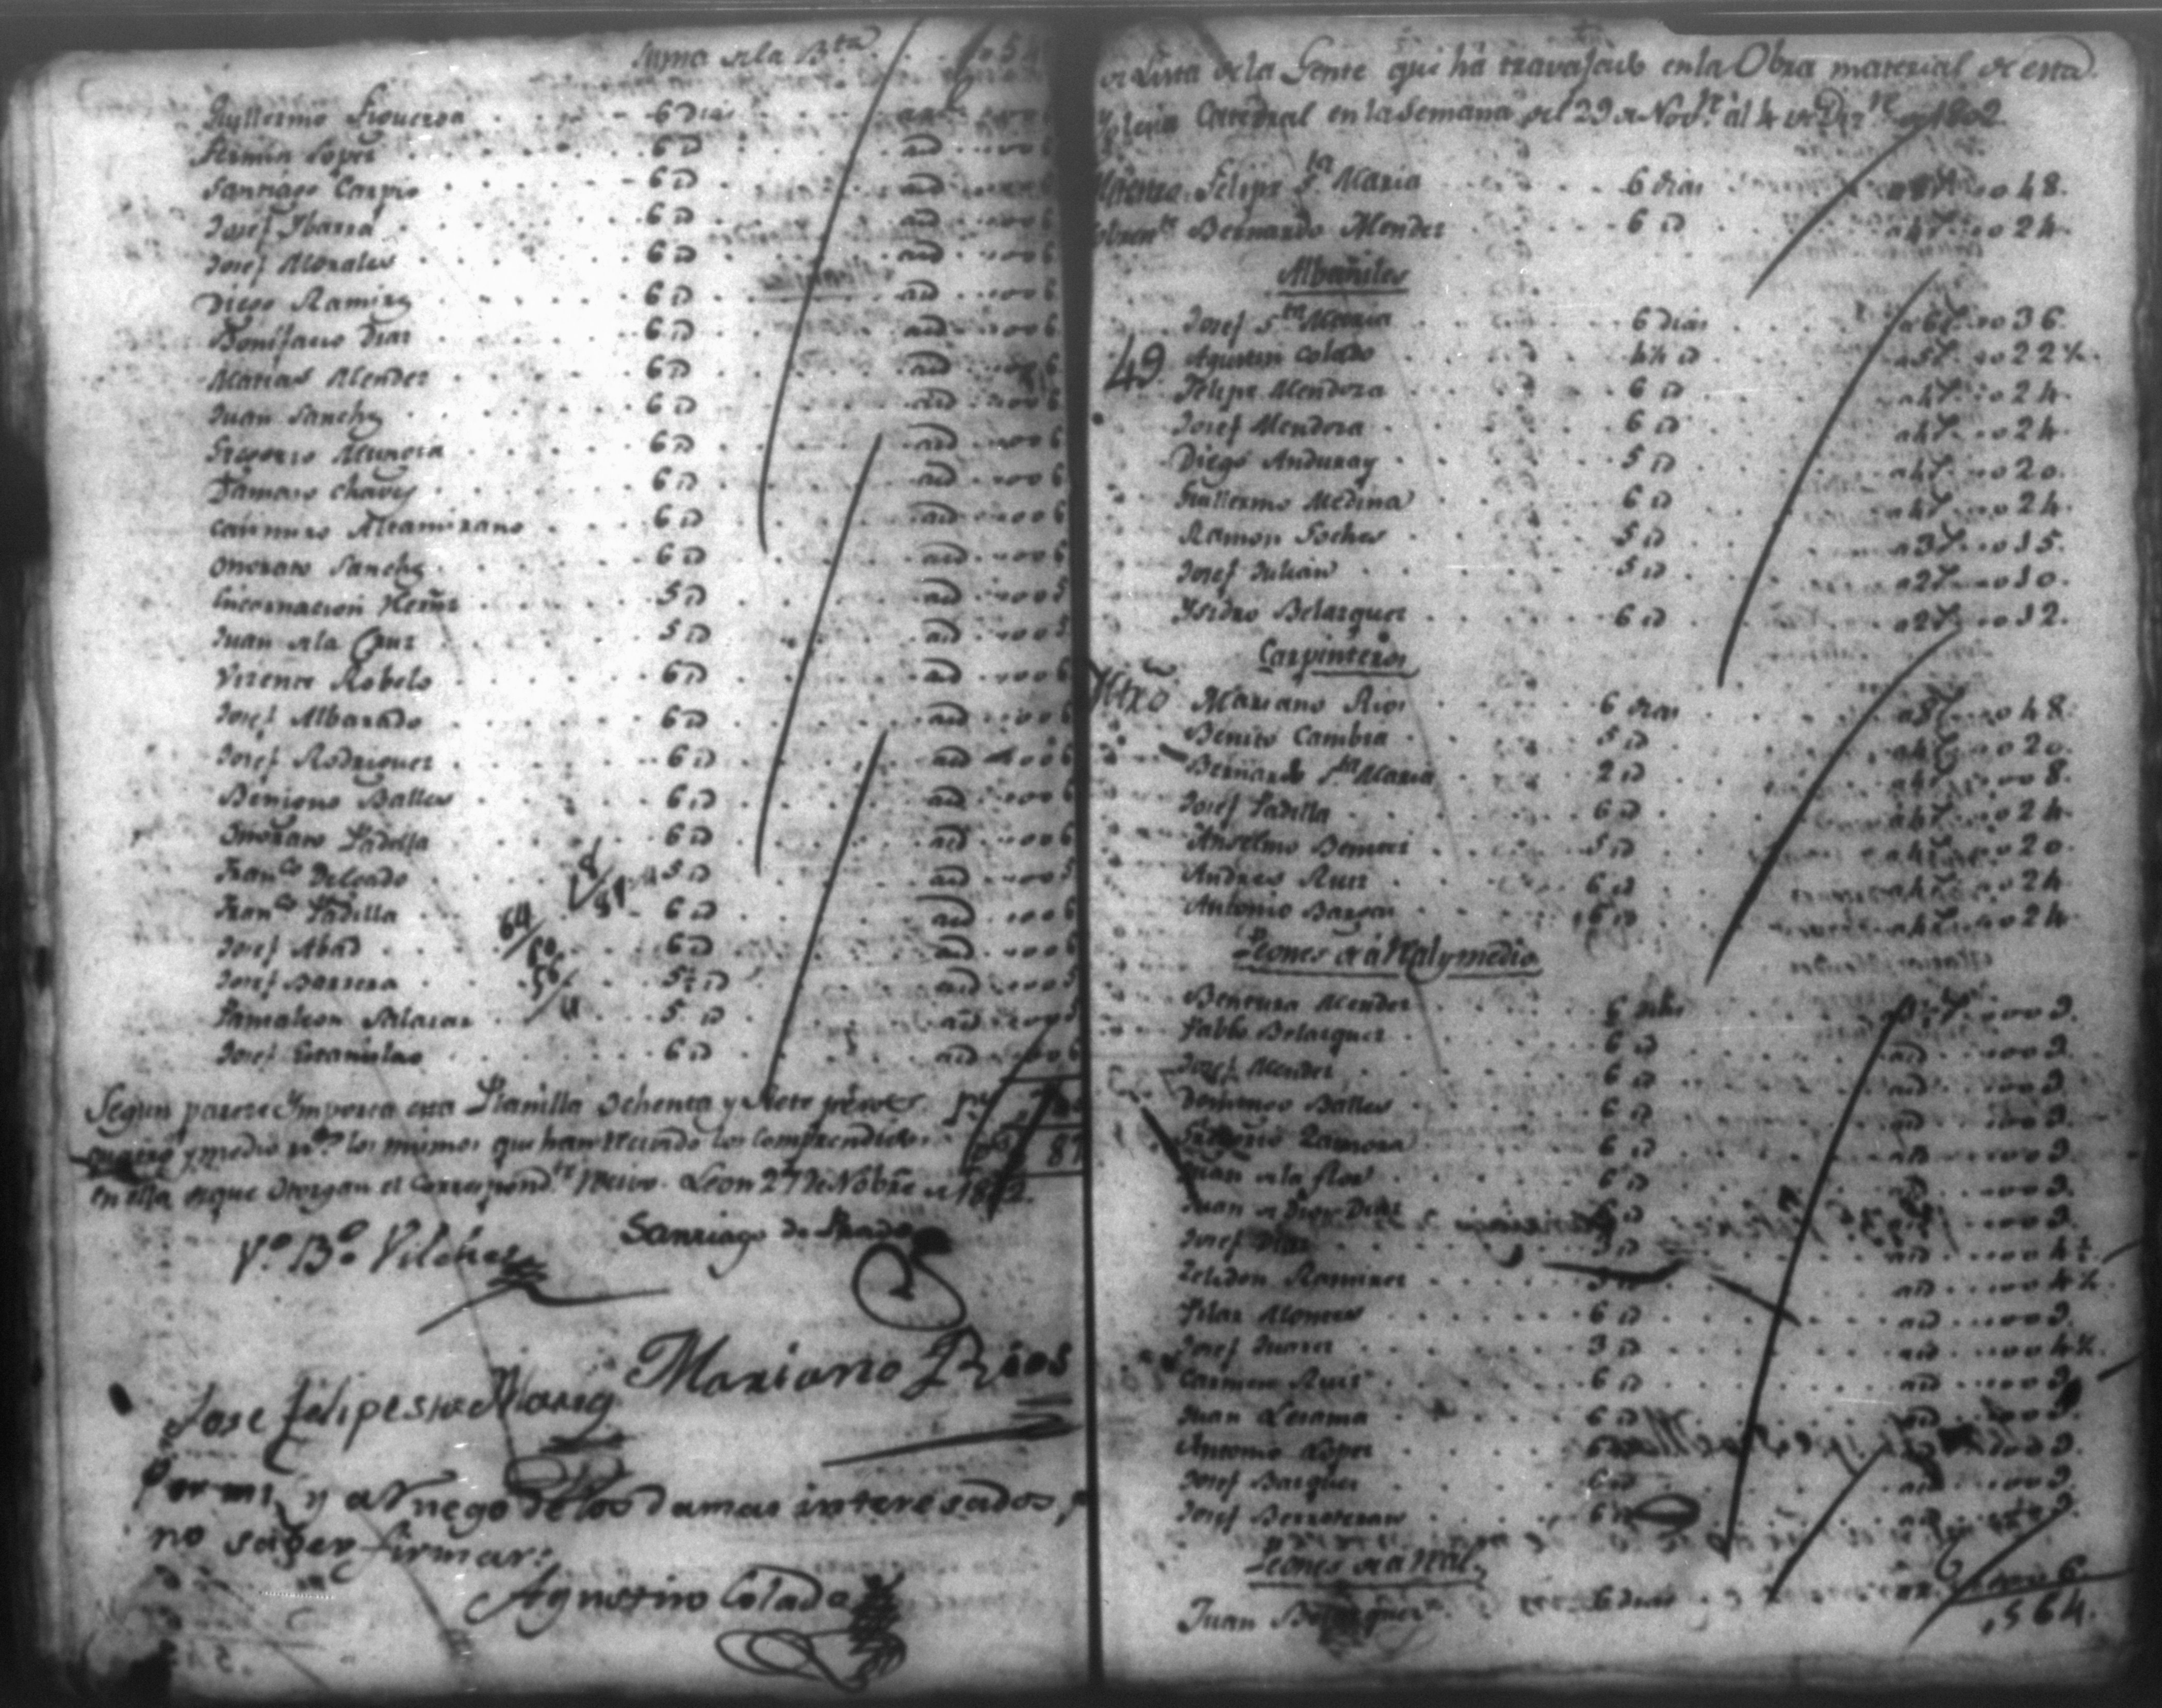 Suma de la B.ta
Guillermo Figueroa 6 dias
Fermin Lopez 6 d
Santiago Carpio 6 d
Josef Ybarra 6 d
Josef Morales 6 d
Diego Ramirez 6 d
Bonifacio Diaz 6 d
Matias Mendez 6 d
Juan Sanchez 6 d
Gregorio 6 d
Damaso Chaves 6 d
Casimiro Altamirano 6 d
Onorato Sanchez 6 d
Encarnacion 5 d
Juan de la Cruz 5 d
Vizente Robelo 6 d
Josef Albarado 6 d
Josef Rodriguez 6 d
Benigno Balles 6 d
Onorato Padilla 6 d
Fran.co Delgado 5 d
Fran.co Padilla 6 d
Josef Abad 6 d
Josef Barrera 5½ d
Pantaleon Salazar 5 d
Josef Estanislao 6 d
Segun parece Ymporta esta Planilla Ochenta y Siete pesos
quatro y medio r.s los mismos que han recivido los comprendidos
en ella de que otorgan el correspond.te recivo. Leon 27 de Nobre de 1802.
V.o B.o Vilches
Santiago de Prado
Mariano Rios
Jose Felipe Sta Maria
Por mi, y a Ruego de los damas interesados, p
no saber firmar:
Agustino Colado
Lista de la Gente que há travajado en la Obra material de esta
Yglecia Catedral en la Semana del 29 de Nov.re al 4 de Diz.re de 1802.
Maestro Felipe S.ta Maria 6 dias a 8 r 48.
Bernardo Mendez 6 d a 4 r 24.
Albañiles
Josef S.ta Maria 6 dias a 6 r 36.
49 Agustin Colado 4½ d a 5 r 22½.
Felipe Mendoza 6 d a 4 r 24.
Josef Mendoza 6 d a 4 r 24.
Diego Anduray 5 d a 4 r 20.
Guillermo Medina 6 d a 4 r 24.
Ramon Foches 5 d a 3 r 15.
Josef Julian 5 d a 2 r 10.
Ysidro Belazquez 6 d a 2 r 12.
Carpinteros
Mtro Mariano Rios 6 dias a 8 r 48.
Benito Cambra 5 d a 4 r 20.
Bernardo S.ta Maria 2 d a 4 r 8.
Josef Padilla 6 d a 4 r 24.
Anselmo 5 d a 4 r 20.
Andres Ruiz 6 d a 4 r 24.
Antonio 6 d a 4 r 24.
Peones de á Real y medio
Bentura Mendez 6 dias 9.
Pablo Belazquez 6 d 9.
Josef Mendez 6 d 9.
Domingo Balles 6 d 9.
Gregorio Zamora 6 d 9.
Juan de la flor 6 d 9.
Juan de Dios Diaz 6 d 9.
Josef Diaz 3 d 4½.
Zeledon Ramirez 3 d 4½.
Pilar 6 d 9.
Josef Juarez 3 d 4½.
Carmen Ruiz 6 d 9.
Juan Lezama 6 d 9.
Antonio Lopez 6 d 9.
Josef Bazquez 6 d 9.
Josef Berroteran 6 d 9.
Peones de á Real
Juan Belazquez 6 dias 6.
564.